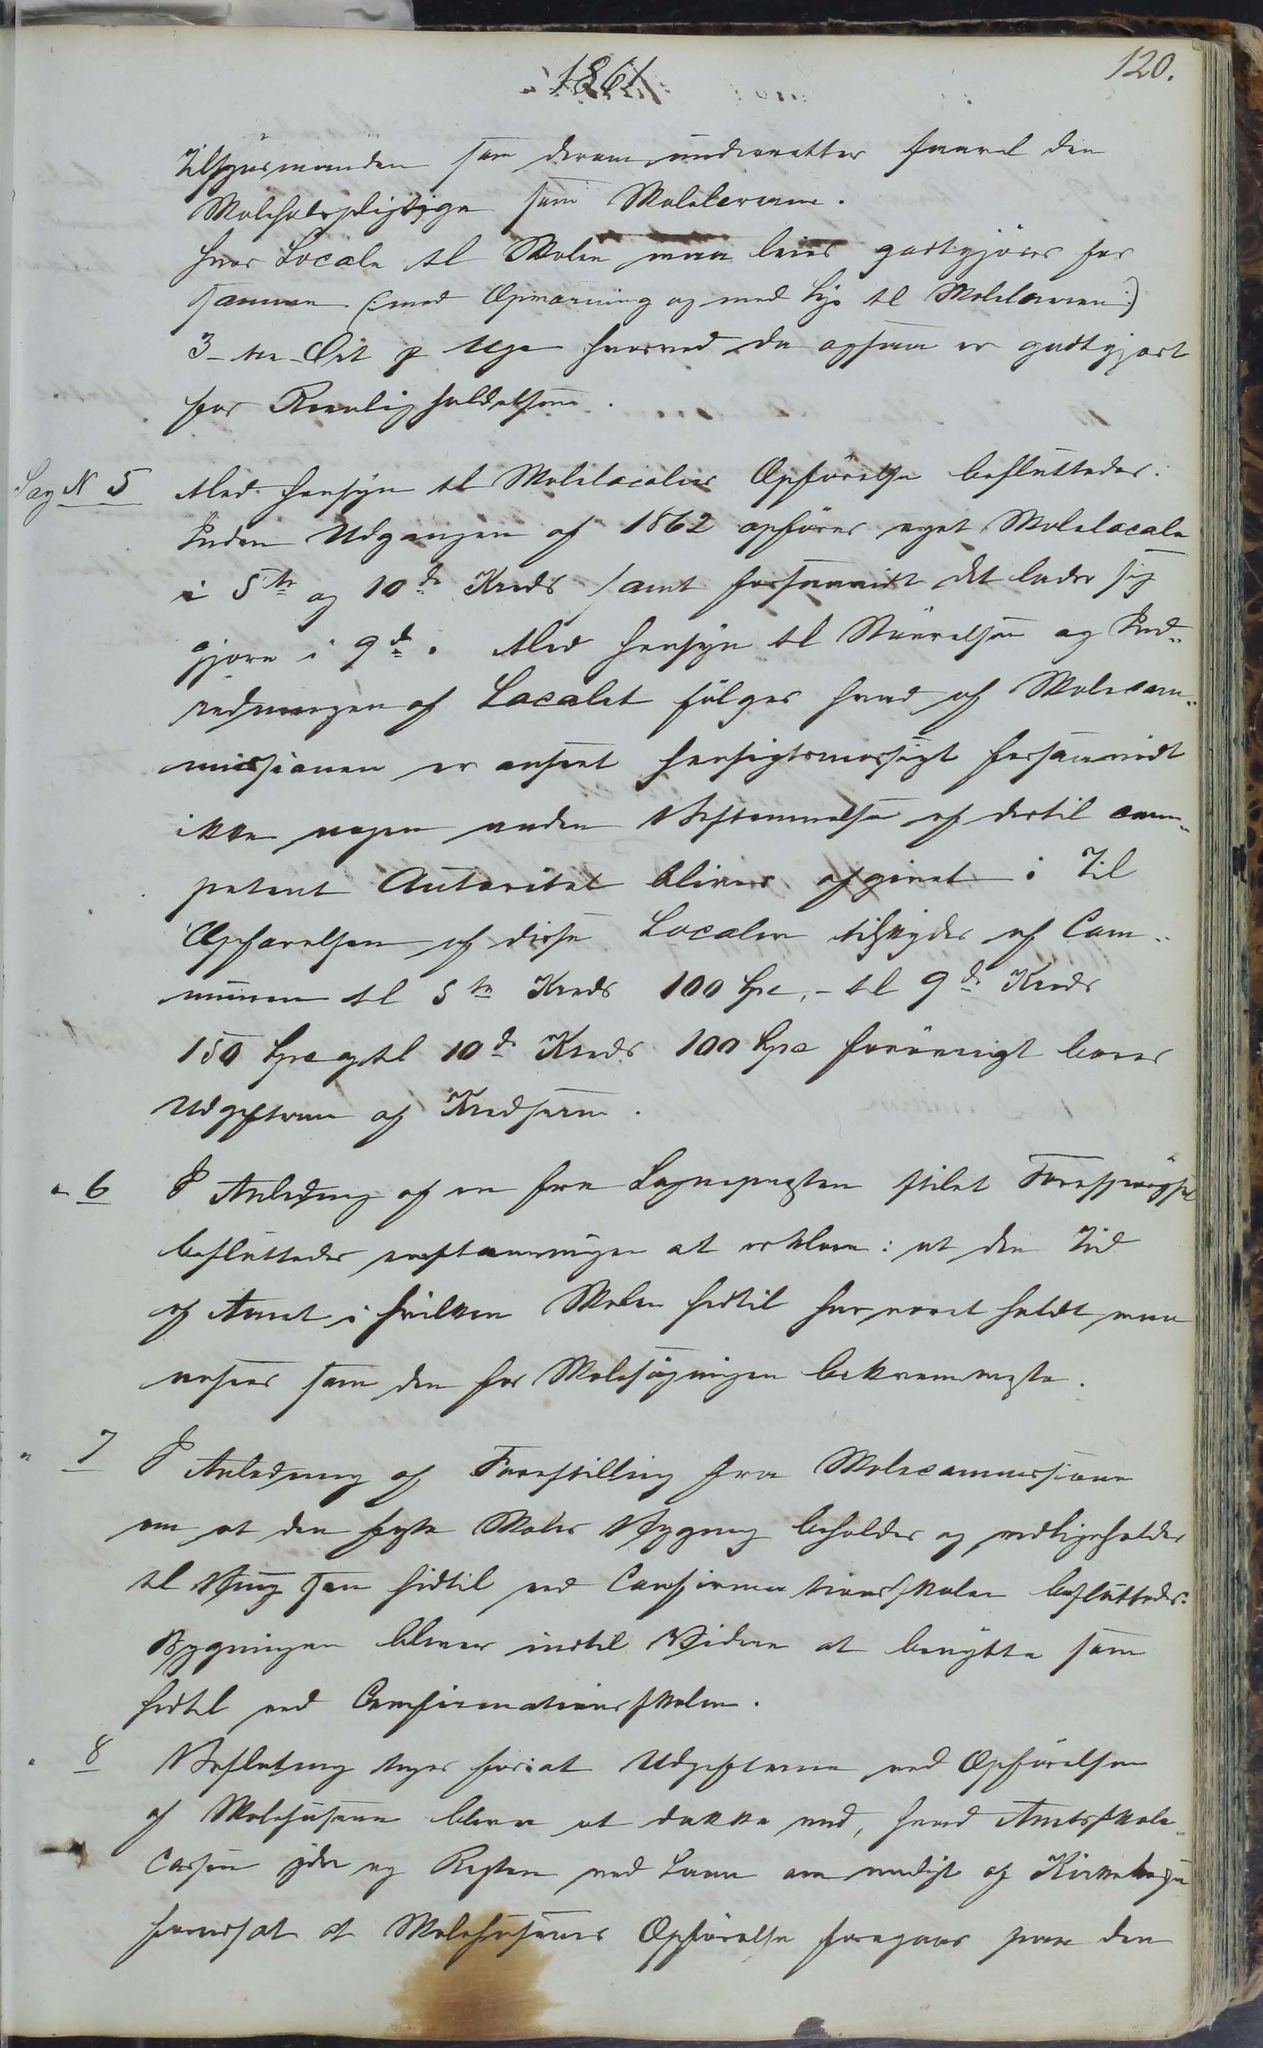 120.
1861
Tilsynsmanden som derom underretter saavel den
Skoleholdspligtige som Skolelæreren.
Hvor Locale til Skolen maa leies godtgjöres for
samme (: med Opvarming og med Lys til Skolelæreren :)
3 - tre - Ort p Uge hvorved da ogsaa er godtgjort
for Reenligholdelsen.
Sag N 5 Med Hensyn til Skolelocalers Opförelse besluttedes:
Inden Udgangen af 1862 opföres eget Skolelocale
i 5te og 10de Kreds samt forsaavidt det lader sig
gjöre i 9de. Med Hensyn til Störrelsen og Ind-
redningen af Localet fölges hvad af Skolecom-
missionen er anseet hensigtsmæssigt forsaavidt
ikke nogen anden Bestemmelse af dertil com-
petent Autoritet bliver afgivet. Til
Opförelsen af disse Localer tilskydes af Com-
munen til 5te Kreds 100 Spd, - til 9de Kreds
150 Spd og til 10de Kreds 100 Spd forövrigt bæres
Udgifterne af Kredsene.
" 6 I Anledning af en fra Sognepresten stilet Forespörgsel
besluttedes enstemmigen at erklære: at den Tid
af Aaret i hvilken Skolen hidtil har været holdt maa
ansees som den for Skolesögningen bekvemmeste.
" 7 I Anledning af Forestilling fra Skolecommissionen
om at den faste Skoles Bygning beholdes og vedligeholdes
til Brug som hidtil ved Confirmationsskolen besluttedes:
Bygningen bliver indtil Videre at benytte som
hidtil ved Confirmationsskolen.
" 8 Beslutning toges for: at Udgifterne ved Opförelsen
af Skolehusene bliver at dække med, hvad Amtsskole-
Cassen yder og Resten ved Laan om muligt af Kirken
forudsat at Skolehusenes Opförelse foregaar paa den